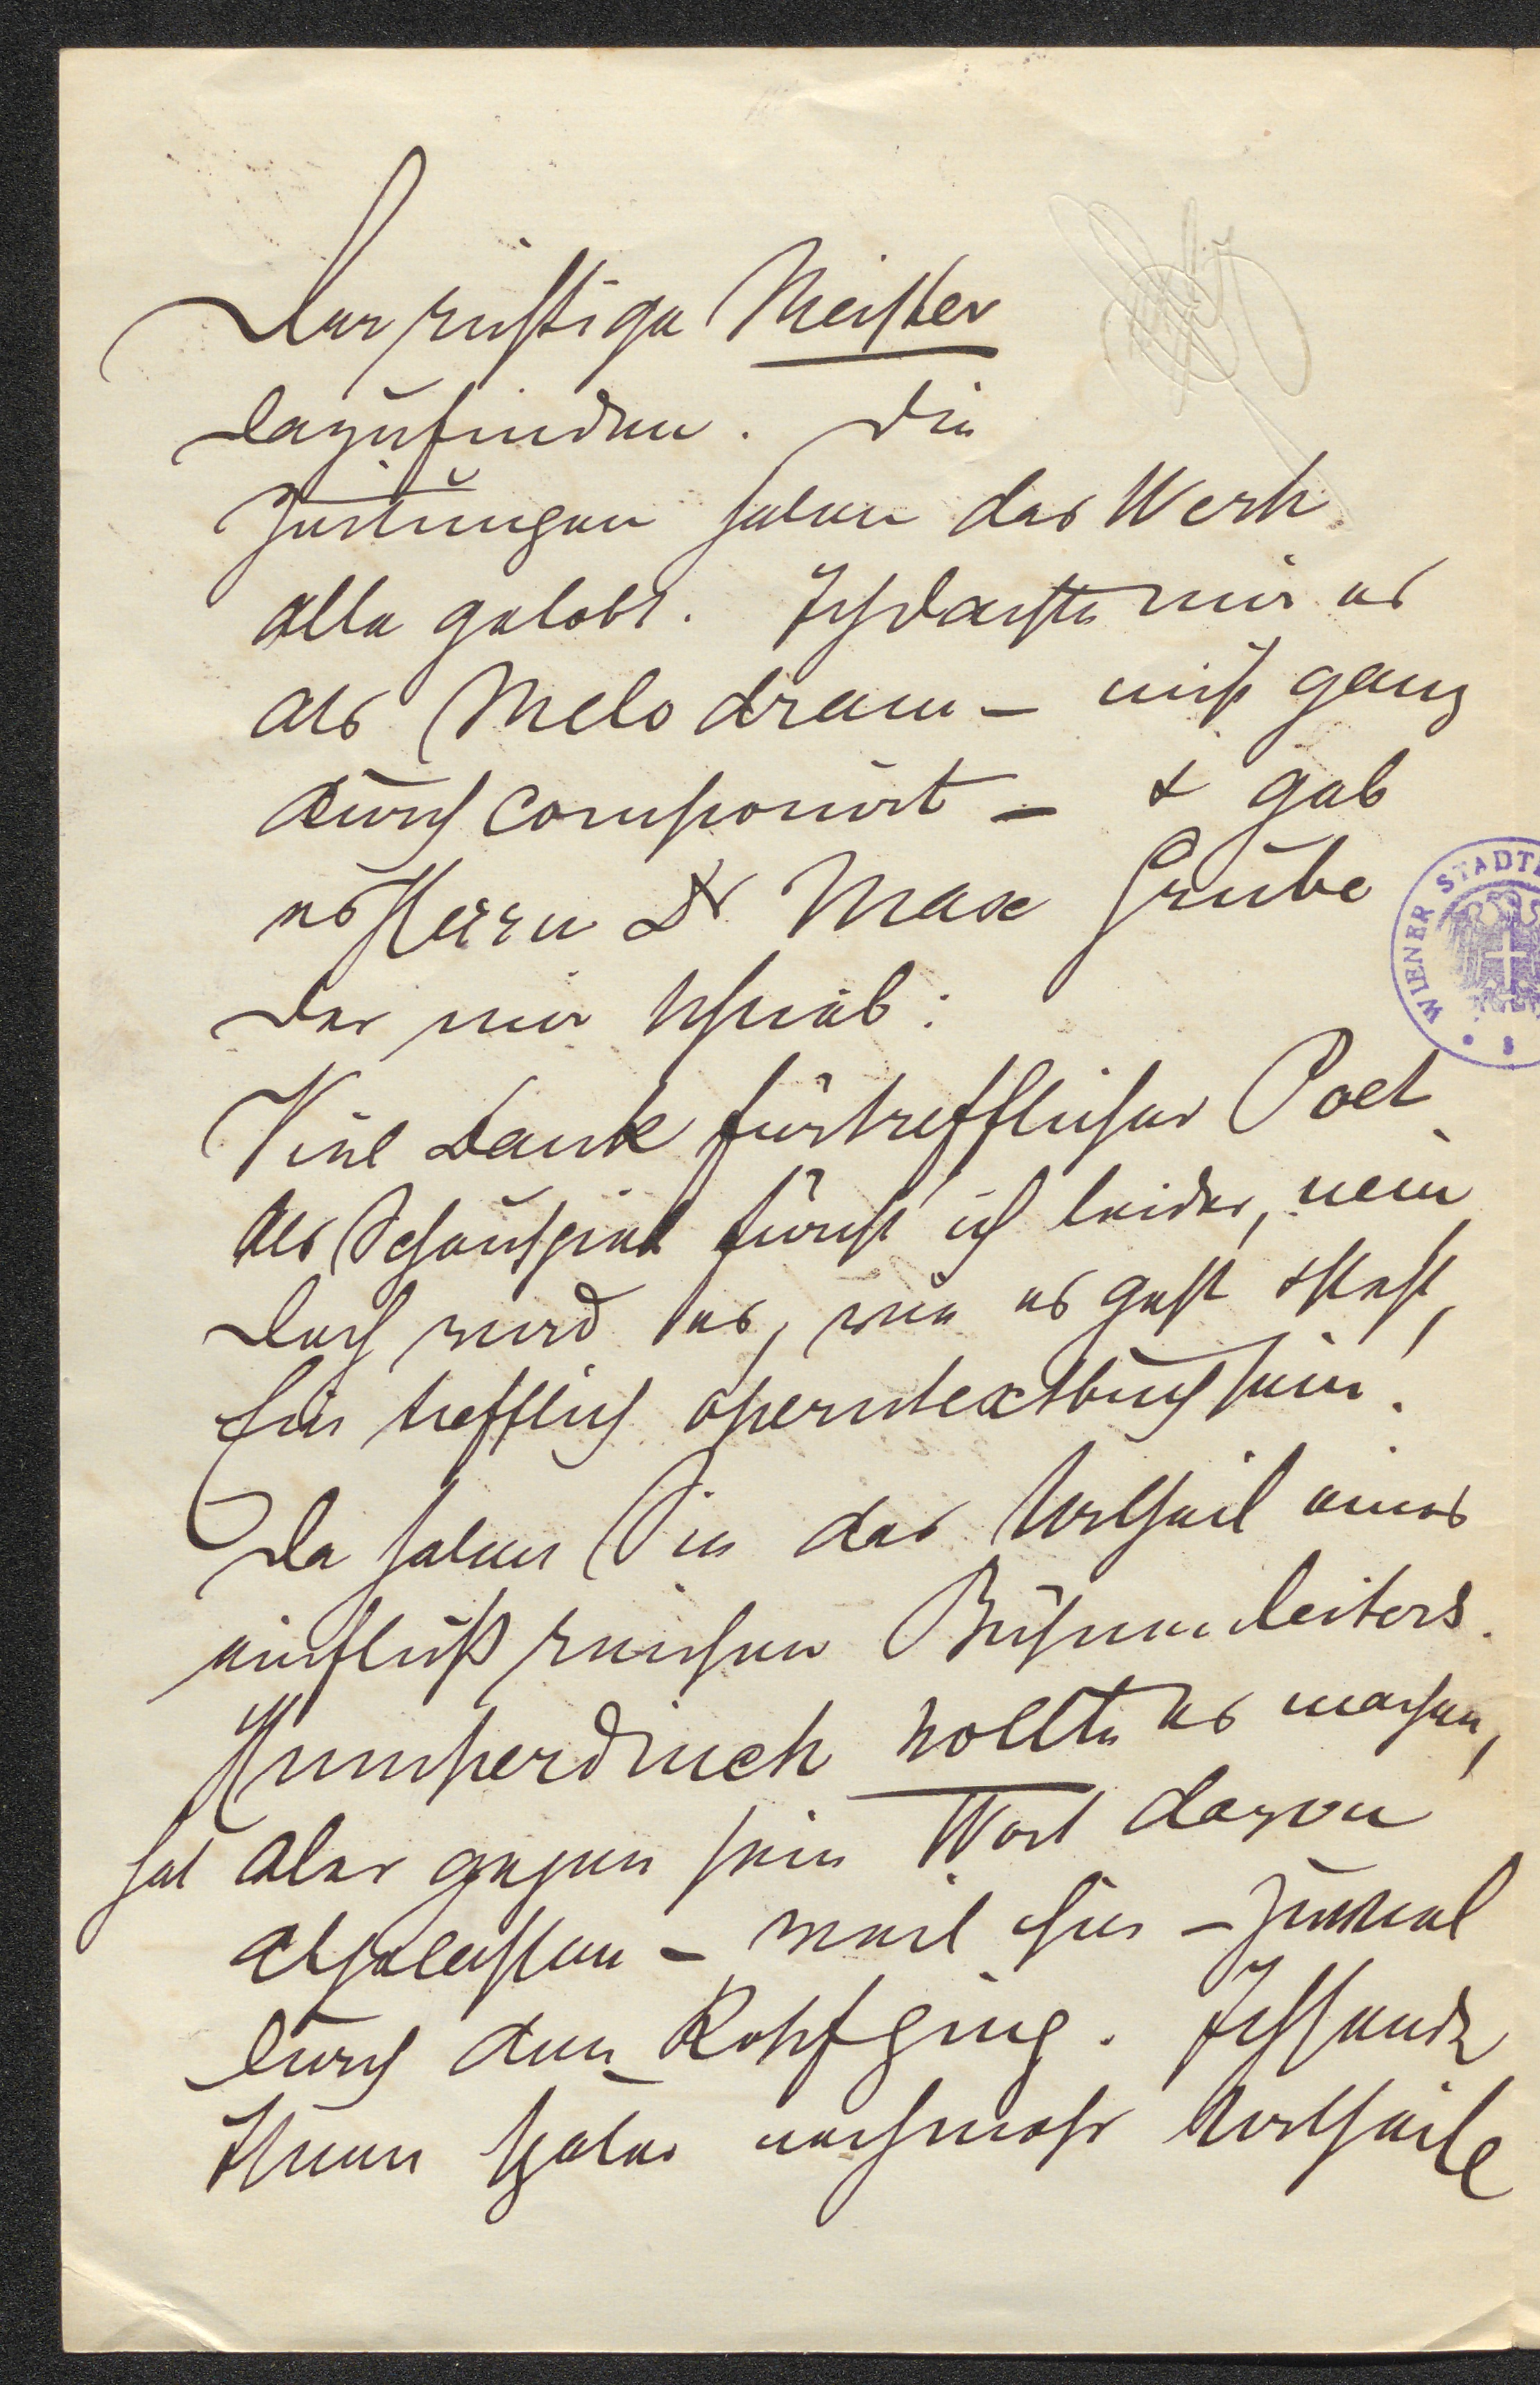 der richtige Meister
dazufinden. Die
Zeitungen haben das Werk
alle gelobt. Ich dachte mir es
als Melodram – nicht ganz
durchcomponirt – & gab
es Herrn Dr Max Grube
der mir schrieb:
Viel Dank fürtrefflicher Poet
Als Schauspiel fürcht ich leider, nein
Doch wird es, wie es geht & steht,
Ein trefflich Operntextbuch sein!
Da haben Sie das Urtheil eines
einflußreichen Bühnenleiters.
Humperdinck wollte es machen,
hat aber gegen sein Wort davon
abgelassen – weil ihm – zuviel
durch den Kopf ging. Ich sende
Ihnen später noch mehr Urtheile
WIENER STADT